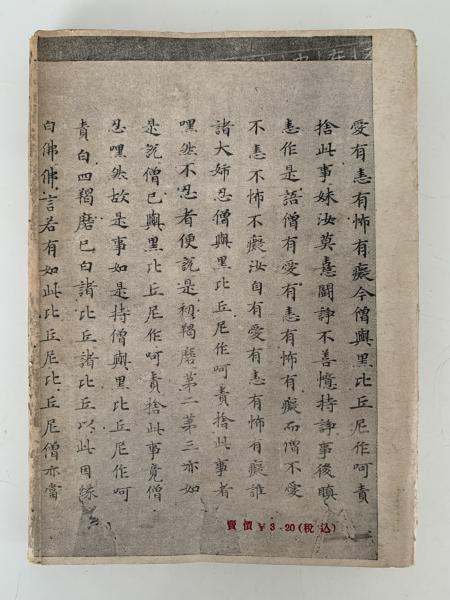 愛有恚有怖有癡今僧與黑比丘尼作呵責
捨此事妹汝莫憙鬪諍不善憶持諍事後瞋
恚作是語僧有愛有恚有怖有癡而僧不愛
不恚不怖不癡汝自有愛有恚有怖有癡誰
諸大姊忍僧與黑比丘尼作呵責捨此事者
嘿然不忍者便說是初羯磨第二第三亦如
是說僧已與黑比丘尼作呵責捨此事竟僧
忍嘿然故是事如是持僧與黑比丘尼作呵
責白四羯磨已白諸比丘諸比丘以此因緣
白佛佛言若有如此比丘尼比丘尼僧亦當
賣價¥3.20(税込)